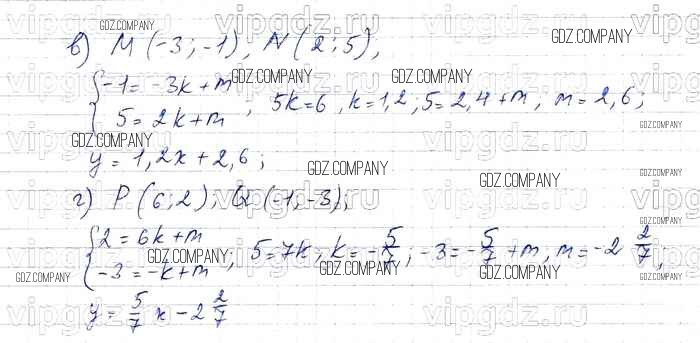 в) M(-3; -1), N(2; 5),
{-1 = -3k + m
{5 = 2k + m, 5k = 6, k = 1,2; 5 = 2,4 + m, m = 2,6;
y = 1,2x + 2,6;
г) P(6; 2), Q(-1, -3);
{2 = 6k + m
{-3 = -k + m; 5 = 7k; k = -5/7; -3 = -5/7 + m, m = -2 2/7;
y = 5/7 x - 2 2/7
GDZ.COMPANY
GDZ.COMPANY
GDZ.COMPANY
GDZ.COMPANY
GDZ.COMPANY
GDZ.COMPANY
GDZ.COMPANY
GDZ.COMPANY
GDZ.COMPANY
GDZ.COMPANY
GDZ.COMPANY
GDZ.COMPANY
GDZ.COMPANY
GDZ.COMPANY
vipgdz.ru
vipgdz.ru
vipgdz.ru
vipgdz.ru
vipgdz.ru
vipgdz.ru